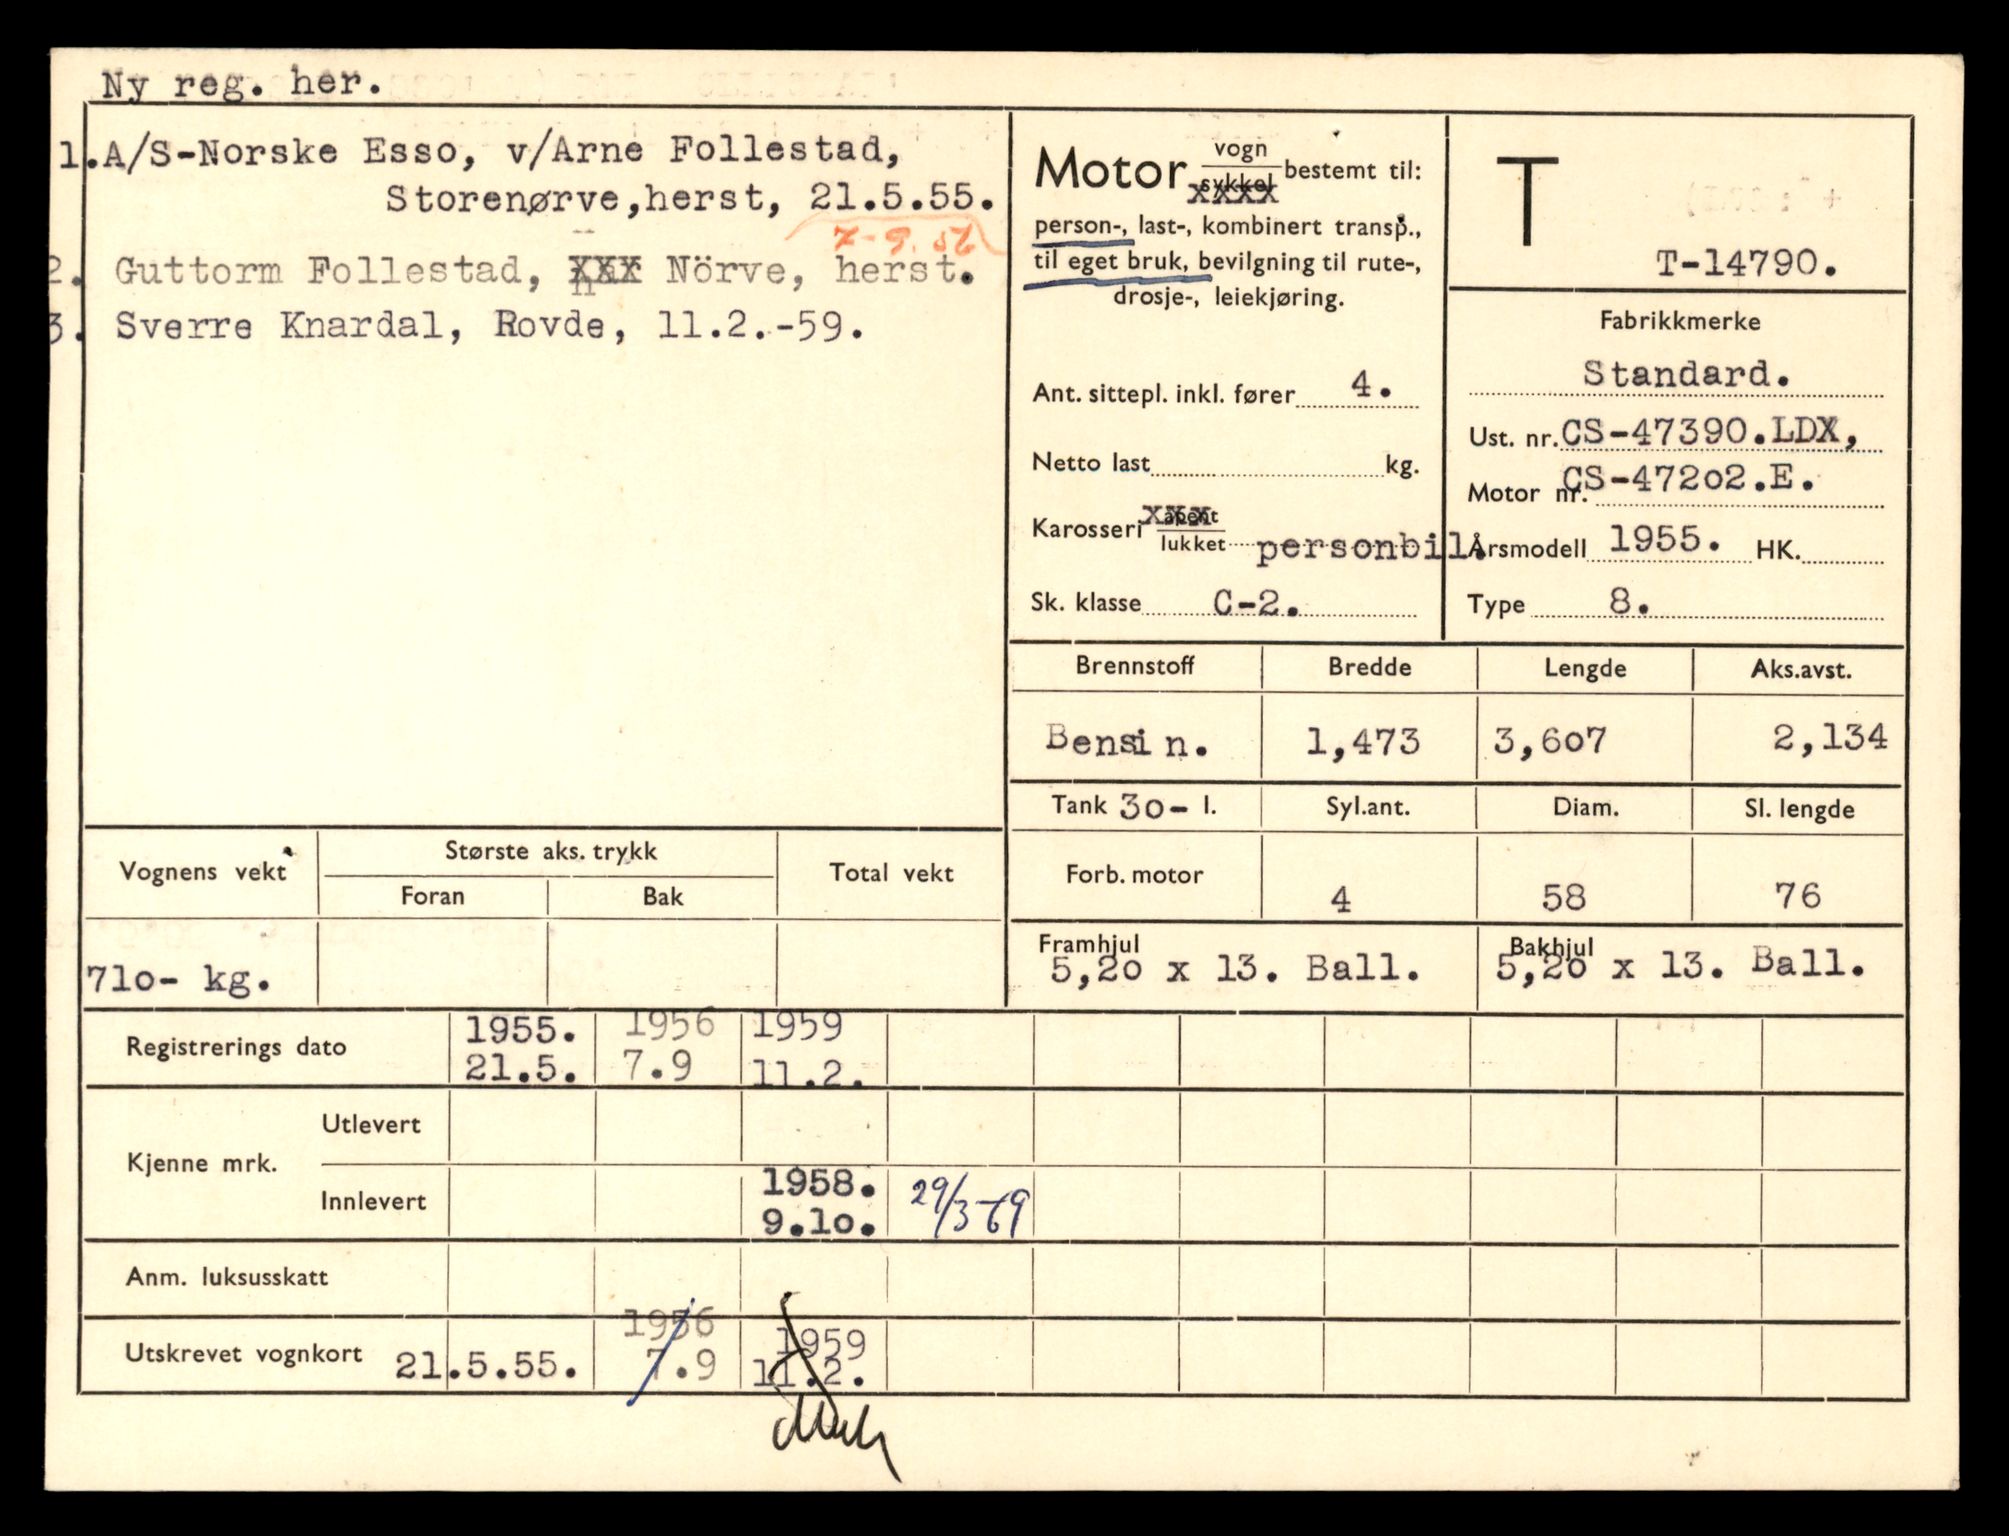 Ny reg. her.
1. A/S-Norske Esso, v/Arne Follestad,
Storenørve,herst, 21.5.55.
7-9.56
2. Guttorm Follestad, Nörve, herst.
3. Sverre Knardal, Rovde, 11.2.-59.
Motor vogn/sykkel bestemt til:
person-, last-, kombinert transp.,
til eget bruk, bevilgning til rute-,
drosje-, leiekjøring.
Ant. sittepl. inkl. fører 4.
Netto last kg.
Karosseri åpent/lukket personbil.
Sk. klasse C-2.
T
T-14790.
Fabrikkmerke
Standard.
Ust. nr. CS-47390.LDX,
Motor nr. CS-472o2.E.
Årsmodell 1955. HK.
Type 8.
Brennstoff Bredde Lengde Aks.avst.
Bensin. 1,473 3,6o7 2,134
Tank 3o- l. Syl.ant. Diam. Sl. lengde
Forb. motor 4 58 76
Framhjul 5,2o x 13. Ball. Bakhjul 5,2o x 13. Ball.
Vognens vekt Største aks. trykk Total vekt
Foran Bak
71o- kg.
Registrerings dato 1955. 1956 1959
21.5. 7.9 11.2.
Kjenne mrk. Utlevert
Innlevert 1958. 29/3-69
9.1o.
Anm. luksusskatt
Utskrevet vognkort 21.5.55. 1956 1959
7.9 11.2.